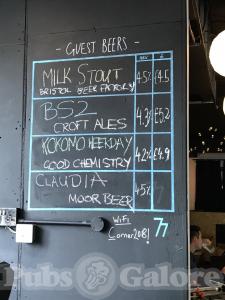 - GUEST BEERS -
ABV £
MILK STOUT 4.5% £4.5
BRISTOL BEER FACTORY
BS2 4.3% £5.2
CROFT ALES
KOKOMO WEEKDAY 4.2% £4.9
GOOD CHEMISTRY
CLAUDIA 4.5%
MOOR BEER
WiFi
Corner2018!
77
Pubs Galore